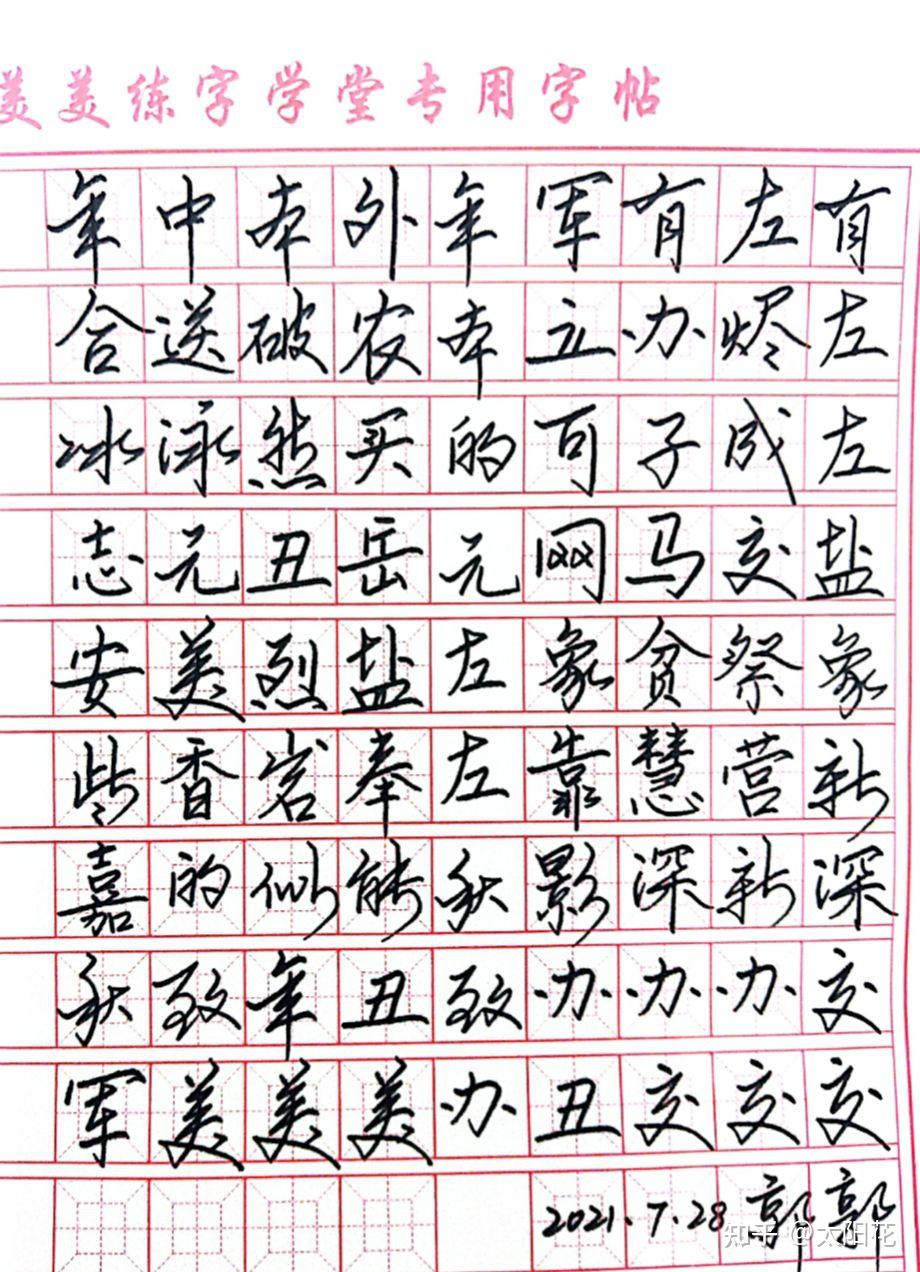 美美练字学堂专用字帖
年中本外年军有左有
合送破农本立办烬左
冰泳然买的可子成左
志元丑岳元网马交盐
安美烈盐左象贫祭象
些香岩奉左靠慧营新
嘉的似能秋影深新深
秋致年丑致办办办交
军美美美办丑交交交
2021.7.28 郭郭
知乎 @太阳花